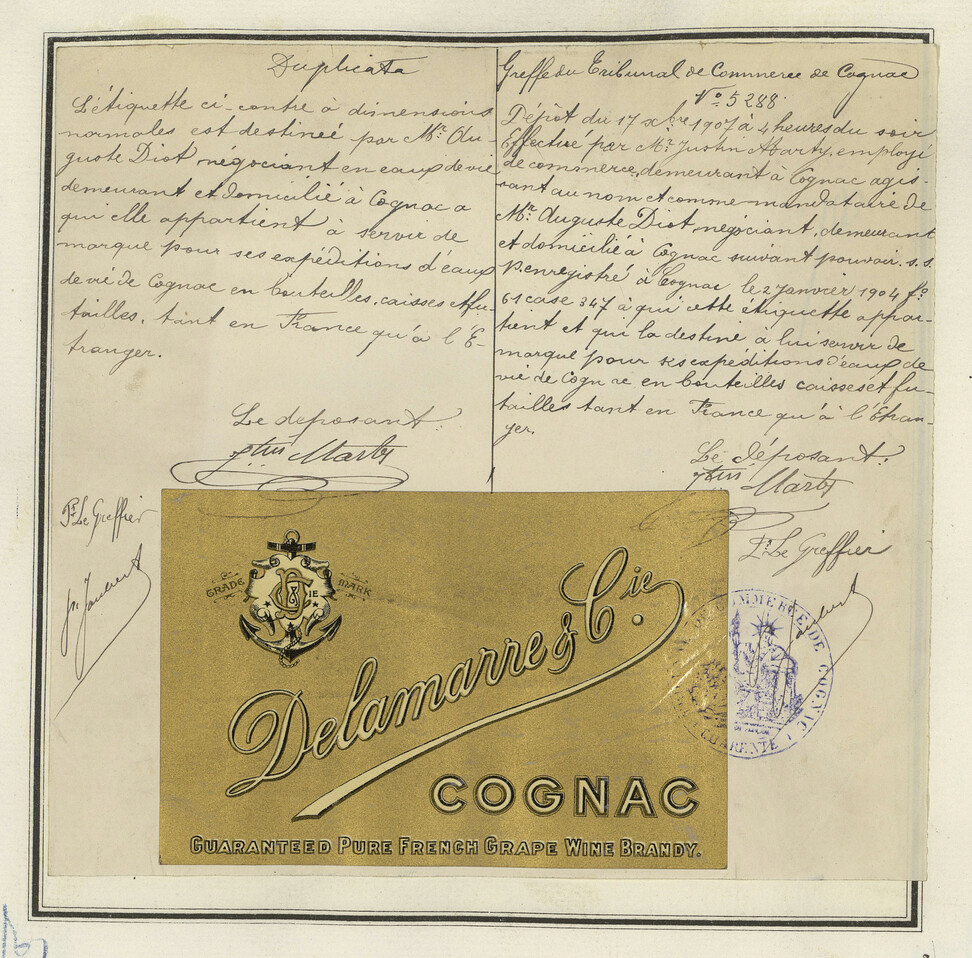 Duplicata
L'étiquette ci-contre à dimensions
normales est destineé par Mr. Au-
guste Diot négociant en eaux de vie
demeurant et domicilié à Cognac a
qui elle appartient à servir de
marque pour ses expéditions d'eaux
de vie de Cognac en bouteilles, caisses et fu-
tailles, tant en France qu'à l'E-
tranger.
Le deposant.
Jtin Marty
Pr. Le Greffier
Greffe du Tribunal de Commerce de Cognac
No. 5288.
Dépôt du 17 xbre 1907 à 4 heures du soir
Effectué par Mr. Justin Marty, employé
de commerce, demeurant à Cognac agis-
sant au nom et comme mandataire de
Mr. Auguste Diot, négociant, demeurant
et domicilié à Cognac suivant pouvoir s.s.
p. enregistré à Cognac le 2 Janvier 1904 fo.
61 case 347 à qui cette étiquette appar-
tient et qui la destine à lui servir de
marque pour ses expéditions d'eaux de
vie de Cognac en bouteilles caisses et fu-
tailles tant en France qu'à l'Etran-
ger.
Le déposant.
Jtin Marty
Pr. Le Greffier
GRADE MARK
DC IE
Delamarre & Cie.
COGNAC
GUARANTEED PURE FRENCH GRAPE WINE BRANDY.
COMMERCE DE COGNAC
CHARENTE